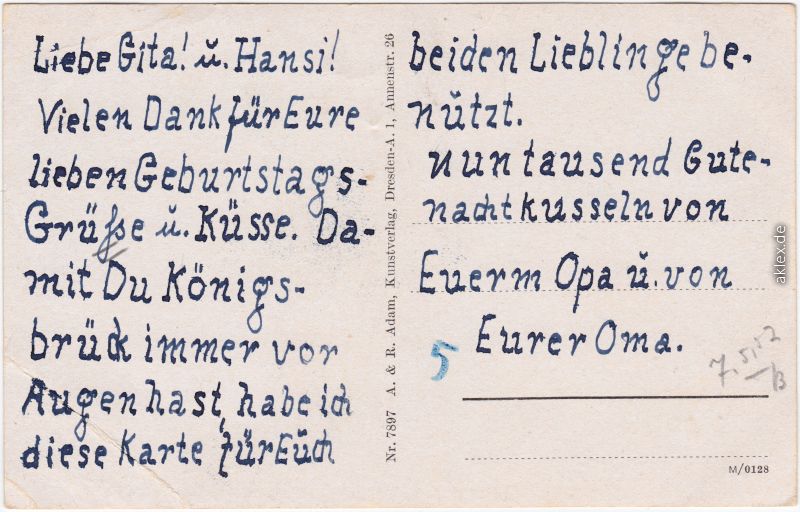 Liebe Gita! u. Hansi!
Vielen Dank für Eure
lieben Geburtstags-
Grüße u. Küsse. Da-
mit Du Königs-
brück immer vor
Augen hast, habe ich
diese Karte für Euch
Nr. 7897 A. & R. Adam, Kunstverlag, Dresden-A. 1, Annenstr. 26
beiden Lieblinge be-
nützt.
Nun tausend Gute-
nachtkusseln von
Euerm Opa u. von
Eurer Oma.
5
7.5.52
B
M/0128
aklex.de